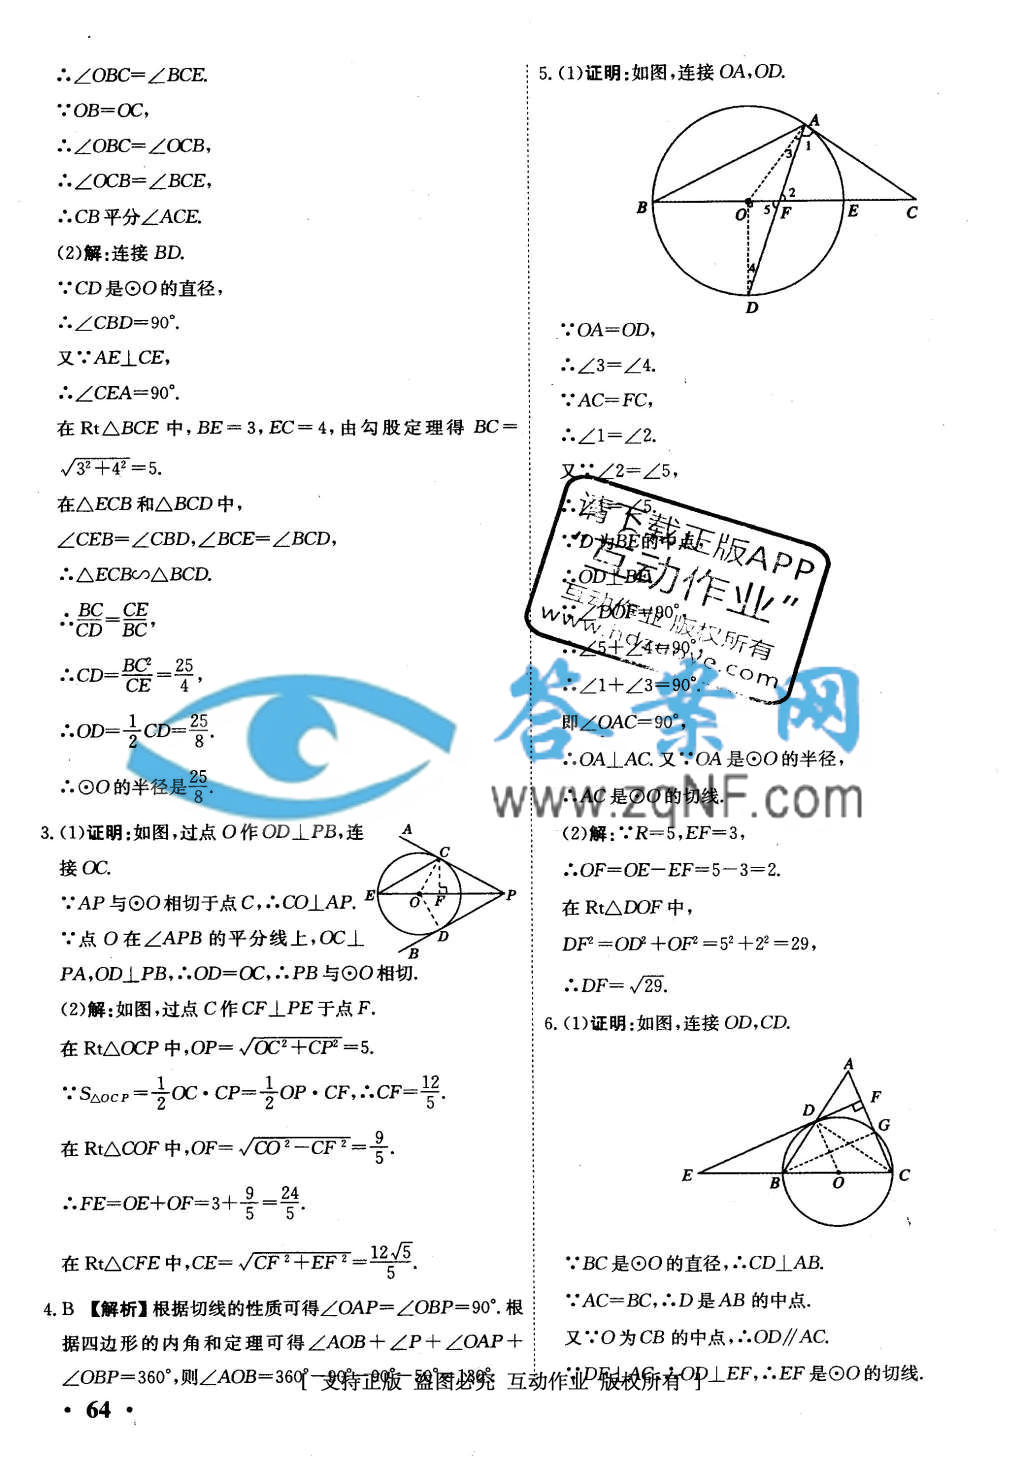 ∴∠OBC=∠BCE.
∵OB=OC,
∴∠OBC=∠OCB,
∴∠OCB=∠BCE,
∴CB平分∠ACE.
(2)解:连接BD.
∵CD是⊙O的直径,
∴∠CBD=90°.
又∵AE⊥CE,
∴∠CEA=90°.
在Rt△BCE中,BE=3,EC=4,由勾股定理得BC=
√(3²+4²)=5.
在△ECB和△BCD中,
∠CEB=∠CBD,∠BCE=∠BCD,
∴△ECB∽△BCD.
∴BC/CD=CE/BC,
∴CD=BC²/CE=25/4,
∴OD=1/2CD=25/8.
∴⊙O的半径是25/8.
3.(1)证明:如图,过点O作OD⊥PB,连
接OC.
∵AP与⊙O相切于点C,∴CO⊥AP.
∵点O在∠APB的平分线上,OC⊥
PA,OD⊥PB,∴OD=OC,∴PB与⊙O相切.
A
C
E
O
F
P
D
B
(2)解:如图,过点C作CF⊥PE于点F.
在Rt△OCP中,OP=√(OC²+CP²)=5.
∵S△OCP=1/2OC·CP=1/2OP·CF,∴CF=12/5.
在Rt△COF中,OF=√(CO²-CF²)=9/5.
∴FE=OE+OF=3+9/5=24/5.
在Rt△CFE中,CE=√(CF²+EF²)=12√5/5.
4.B 【解析】根据切线的性质可得∠OAP=∠OBP=90°.根
据四边形的内角和定理可得∠AOB+∠P+∠OAP+
∠OBP=360°,则∠AOB=360°-90°-90°-50°=130°.
5.(1)证明:如图,连接OA,OD.
A
1
3
2
B
O
5
F
E
C
4
D
∵OA=OD,
∴∠3=∠4.
∵AC=FC,
∴∠1=∠2.
又∵∠2=∠5,
∴∠1=∠5.
∵D为BE的中点,
∴OD⊥BE,
∵∠DOF=90°.
∴∠5+∠4=90°,
∴∠1+∠3=90°.
即∠OAC=90°,
∴OA⊥AC.又∵OA是⊙O的半径,
∴AC是⊙O的切线.
(2)解:∵R=5,EF=3,
∴OF=OE-EF=5-3=2.
在Rt△DOF中,
DF²=OD²+OF²=5²+2²=29,
∴DF=√29.
6.(1)证明:如图,连接OD,CD.
A
F
D
G
E
B
O
C
∵BC是⊙O的直径,∴CD⊥AB.
∵AC=BC,∴D是AB的中点.
又∵O为CB的中点,∴OD∥AC.
∵DF⊥AC,∴OD⊥EF,∴EF是⊙O的切线.
请下载正版APP
“互动作业”
互动作业 版权所有
答案网
www.zqNF.com
[ 支持正版 盗图必究 互动作业 版权所有 ]
· 64 ·